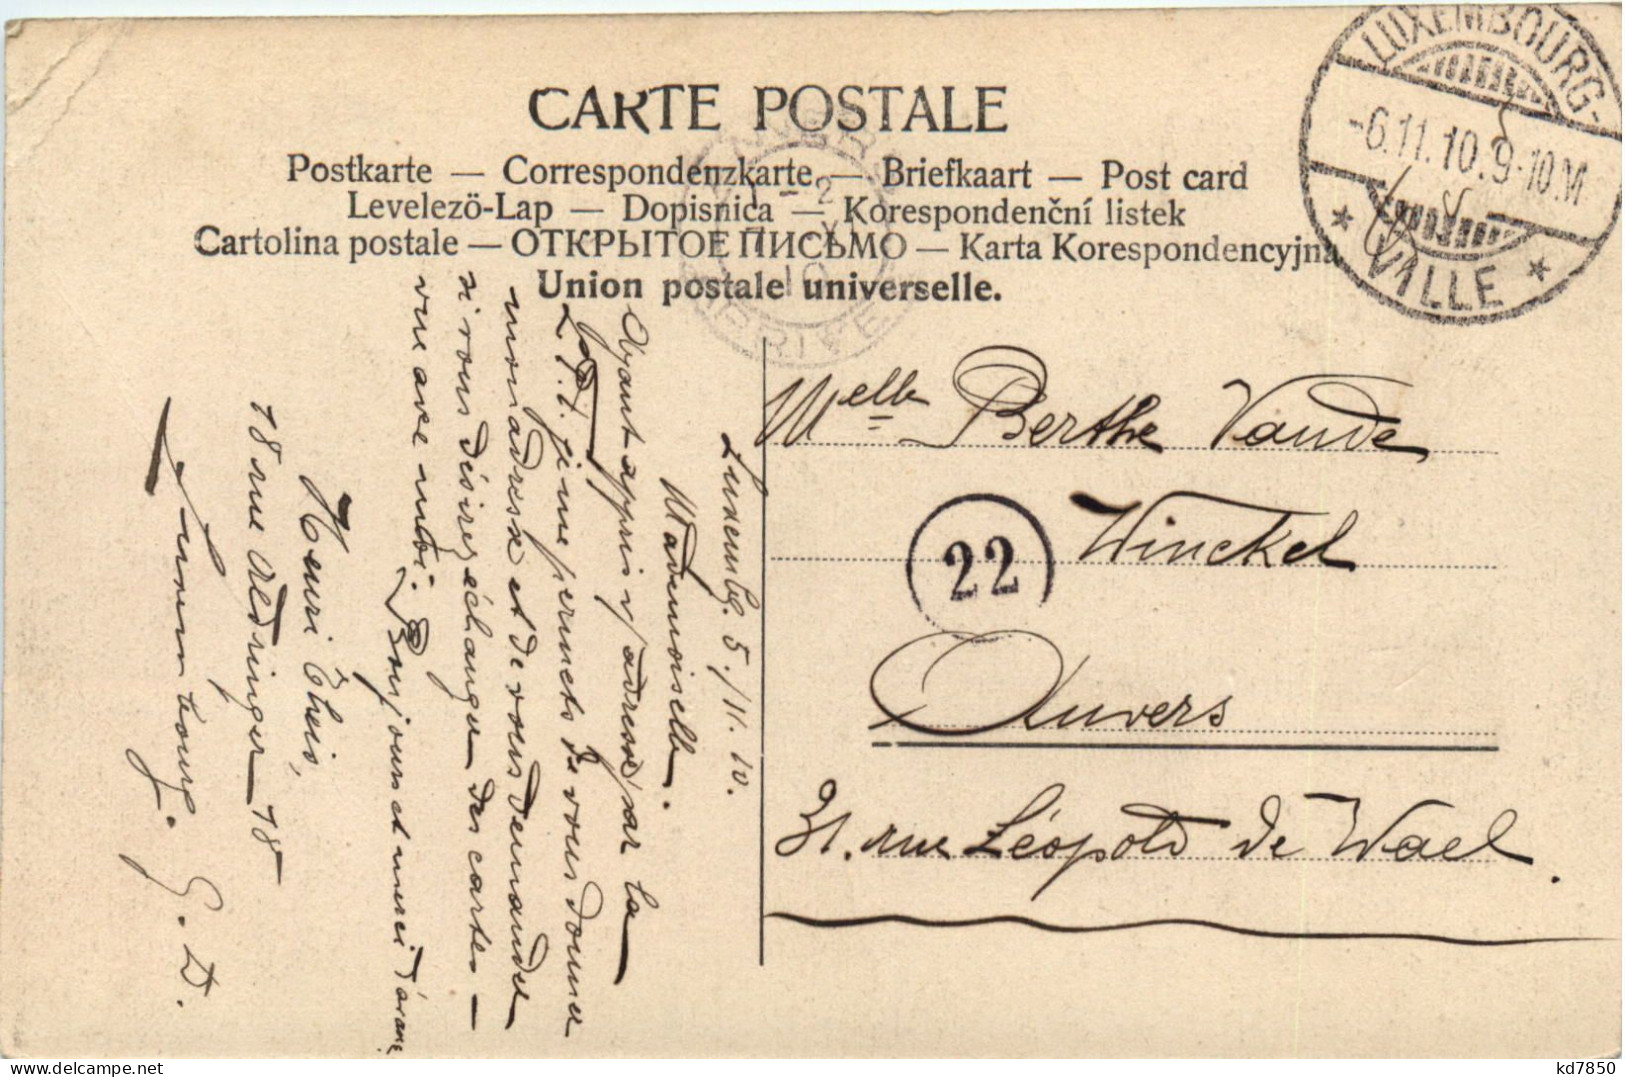 CARTE POSTALE
Postkarte — Correspondenzkarte — Briefkaart — Post card
Levelezö-Lap — Dopisnica — Korespondenční listek
Cartolina postale — ОТКРЫТОЕ ПИСЬМО — Karta Korespondencyjna
Union postale universelle.
LUXEMBOURG-
-6.11.10.9-10M
VILLE
Melle Berthe Vande
Winckel
22
Anvers
31. rue Léopold de Wael.
Luxembg. 5./11.10.
Mademoiselle.
Ayant appris v/adresse par la
L.T.I. je me permets de vous donner
mon adresse et de vous demander
si vous désirez échanger des cartes-
vue avec moi. Bonjour et merci d'avance
Henri Theis,
18 rue Aldringer 18
Luxembourg.
G. D.
kd7850